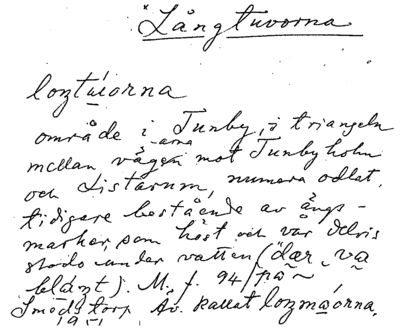 Långtuvorna
loztúiorna
område i Tunby, i triangeln
mellan vägarna mot Tunbyholm
och Listarum, numera odlat,
tidigare bestående av ängs-
marker, som höst och vår delvis
stodo under vatten (dær va
blázt). M, f. 94 / på
Smedstorp Av. kallat lozmaórna.
1951